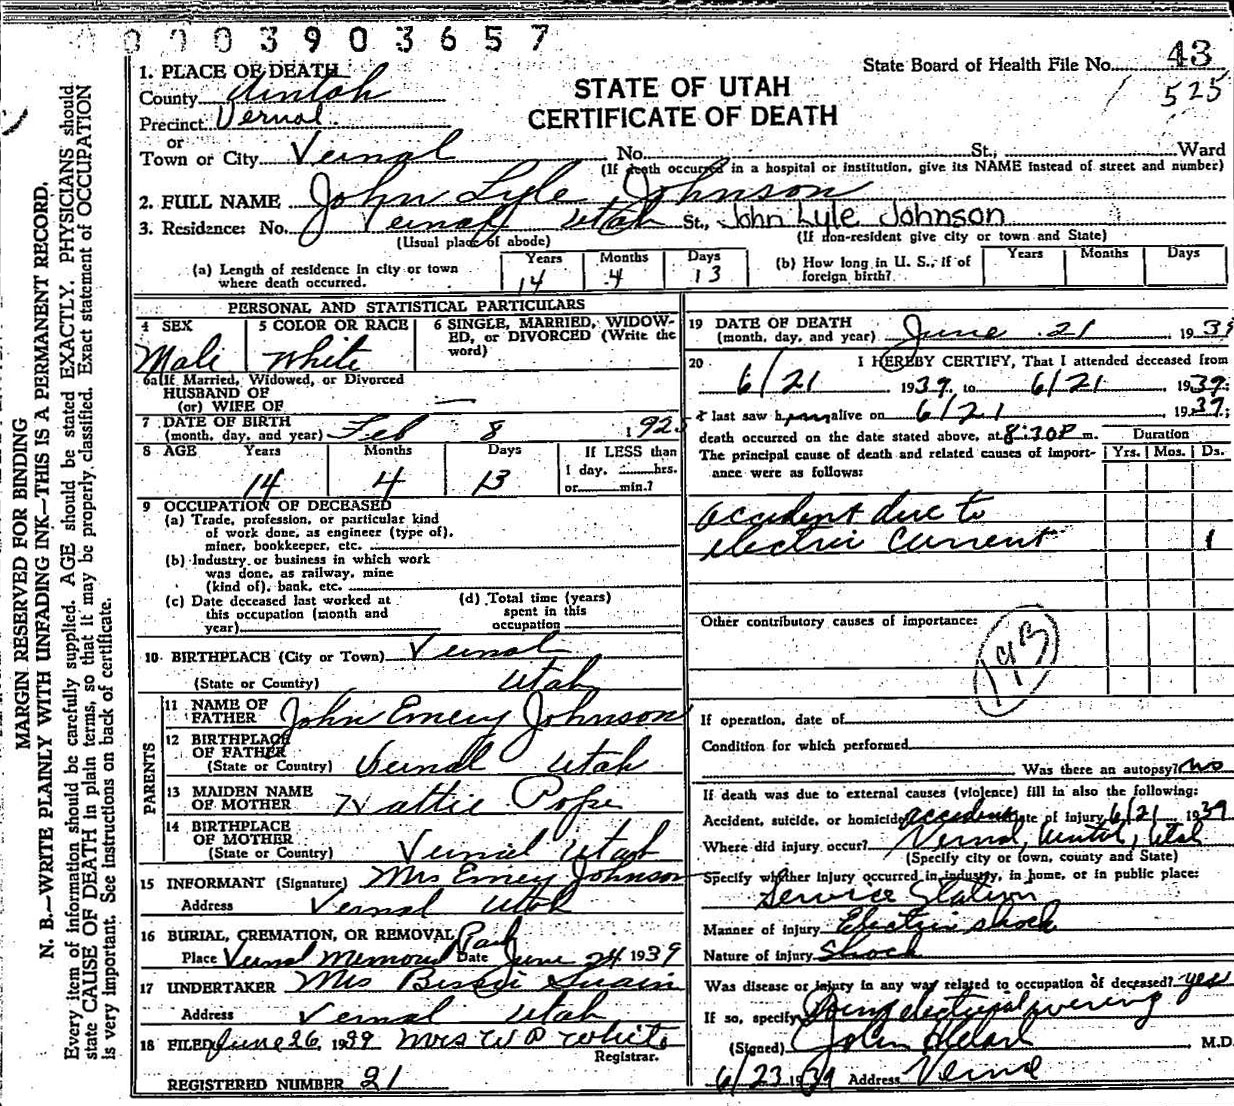 0003903657
State Board of Health File No. 43
525
STATE OF UTAH
CERTIFICATE OF DEATH
1. PLACE OF DEATH
County Uintah
Precinct Vernal
or
Town or City Vernal No. St., Ward
(If death occurred in a hospital or institution, give its NAME instead of street and number)
2. FULL NAME John Lyle Johnson
3. Residence: No. Vernal Utah St., John Lyle Johnson
(Usual place of abode) (If non-resident give city or town and State)
(a) Length of residence in city or town where death occurred. Years 14 Months 4 Days 13
(b) How long in U. S., if of foreign birth? Years Months Days
PERSONAL AND STATISTICAL PARTICULARS
4 SEX Male
5 COLOR OR RACE White
6 SINGLE, MARRIED, WIDOWED, or DIVORCED (Write the word)
6a If Married, Widowed, or Divorced
HUSBAND OF
(or) WIFE OF —
7 DATE OF BIRTH
(month, day, and year) Feb 8 1925
8 AGE Years 14 Months 4 Days 13 If LESS than 1 day, hrs. or min.?
9 OCCUPATION OF DECEASED
(a) Trade, profession, or particular kind
of work done, as engineer (type of),
miner, bookkeeper, etc.
(b) Industry or business in which work
was done, as railway, mine
(kind of), bank, etc.
(c) Date deceased last worked at
this occupation (month and
year)
(d) Total time (years)
spent in this
occupation
10 BIRTHPLACE (City or Town) Vernal
(State or Country) Utah
PARENTS
11 NAME OF FATHER John Emery Johnson
12 BIRTHPLACE OF FATHER
(State or Country) Vernal Utah
13 MAIDEN NAME OF MOTHER Hattie Pope
14 BIRTHPLACE OF MOTHER
(State or Country) Vernal Utah
15 INFORMANT (Signature) Mrs Emery Johnson
Address Vernal Utah
16 BURIAL, CREMATION, OR REMOVAL Park
Place Vernal Memorial Date June 24 1939
17 UNDERTAKER Mrs Bessie Swain
Address Vernal Utah
18 FILED June 26, 1939 Mrs W P White
Registrar.
REGISTERED NUMBER 21
19 DATE OF DEATH
(month, day, and year) June 21 1939
20 I HEREBY CERTIFY, That I attended deceased from
6/21 1939, to 6/21 1939;
I last saw him alive on 6/21 1939;
death occurred on the date stated above, at 8:30P m.
The principal cause of death and related causes of importance were as follows:
Duration
Yrs. Mos. Ds.
accident due to
electric current 1
Other contributory causes of importance:
193
If operation, date of
Condition for which performed
Was there an autopsy? No
If death was due to external causes (violence) fill in also the following:
Accident, suicide, or homicide accident date of injury 6/21 1939
Where did injury occur? Vernal, Uintah, Utah
(Specify city or town, county and State)
Specify whether injury occurred in industry, in home, or in public place:
Service Station
Manner of injury Electric shock
Nature of injury Shock
Was disease or injury in any way related to occupation of deceased? yes
If so, specify Doing electrical wiring
(Signed) John M.D.
6/23 1939 Address Vernal
MARGIN RESERVED FOR BINDING
N. B.—WRITE PLAINLY WITH UNFADING INK—THIS IS A PERMANENT RECORD.
Every item of information should be carefully supplied. AGE should be stated EXACTLY. PHYSICIANS should
state CAUSE OF DEATH in plain terms, so that it may be properly classified. Exact statement of OCCUPATION
is very important. See instructions on back of certificate.